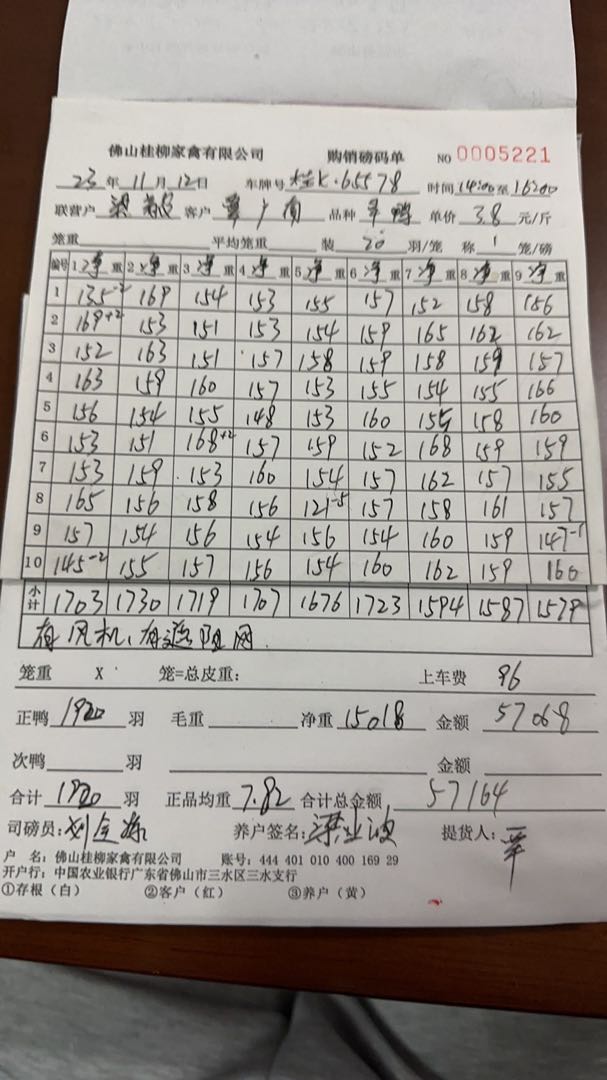 佛山桂柳家禽有限公司 购销磅码单 NO 0005221
23年11月12日 车牌号 桂K·65578 时间14:00至16:00
联营户 客户 广南 品种 单价 3.8 元/斤
笼重 平均笼重 装 20 羽/笼 称 1 笼/磅
编号 1净重 2净重 3净重 4净重 5净重 6净重 7净重 8净重 9净重
1 135-2 169 154 153 155 157 152 158 156
2 169+2 153 151 153 154 159 165 162 162
3 152 163 151 157 158 159 158 159 157
4 163 159 160 157 153 155 154 155 166
5 156 154 155 148 153 160 155 158 160
6 153 151 168+2 157 159 152 168 159 159
7 153 159 153 160 154 157 162 157 155
8 165 156 158 156 121-5 157 158 161 157
9 157 154 156 154 156 154 160 159 147-1
10 145-2 155 157 156 154 160 162 159 160
小计 1703 1730 1719 1707 1676 1723 1594 1587 1579
有风机、有遮阻网
笼重 X 笼=总皮重: 上车费 96
正鸭 1920 羽 毛重 净重 15018 金额 57068
次鸭 羽 金额
合计 1920 羽 正品均重 7.82 合计总金额 57164
司磅员: 养户签名: 提货人:
户 名: 佛山桂柳家禽有限公司 账号: 444 401 010 400 169 29
开户行: 中国农业银行广东省佛山市三水区三水支行
①存根（白） ②客户（红） ③养户（黄）